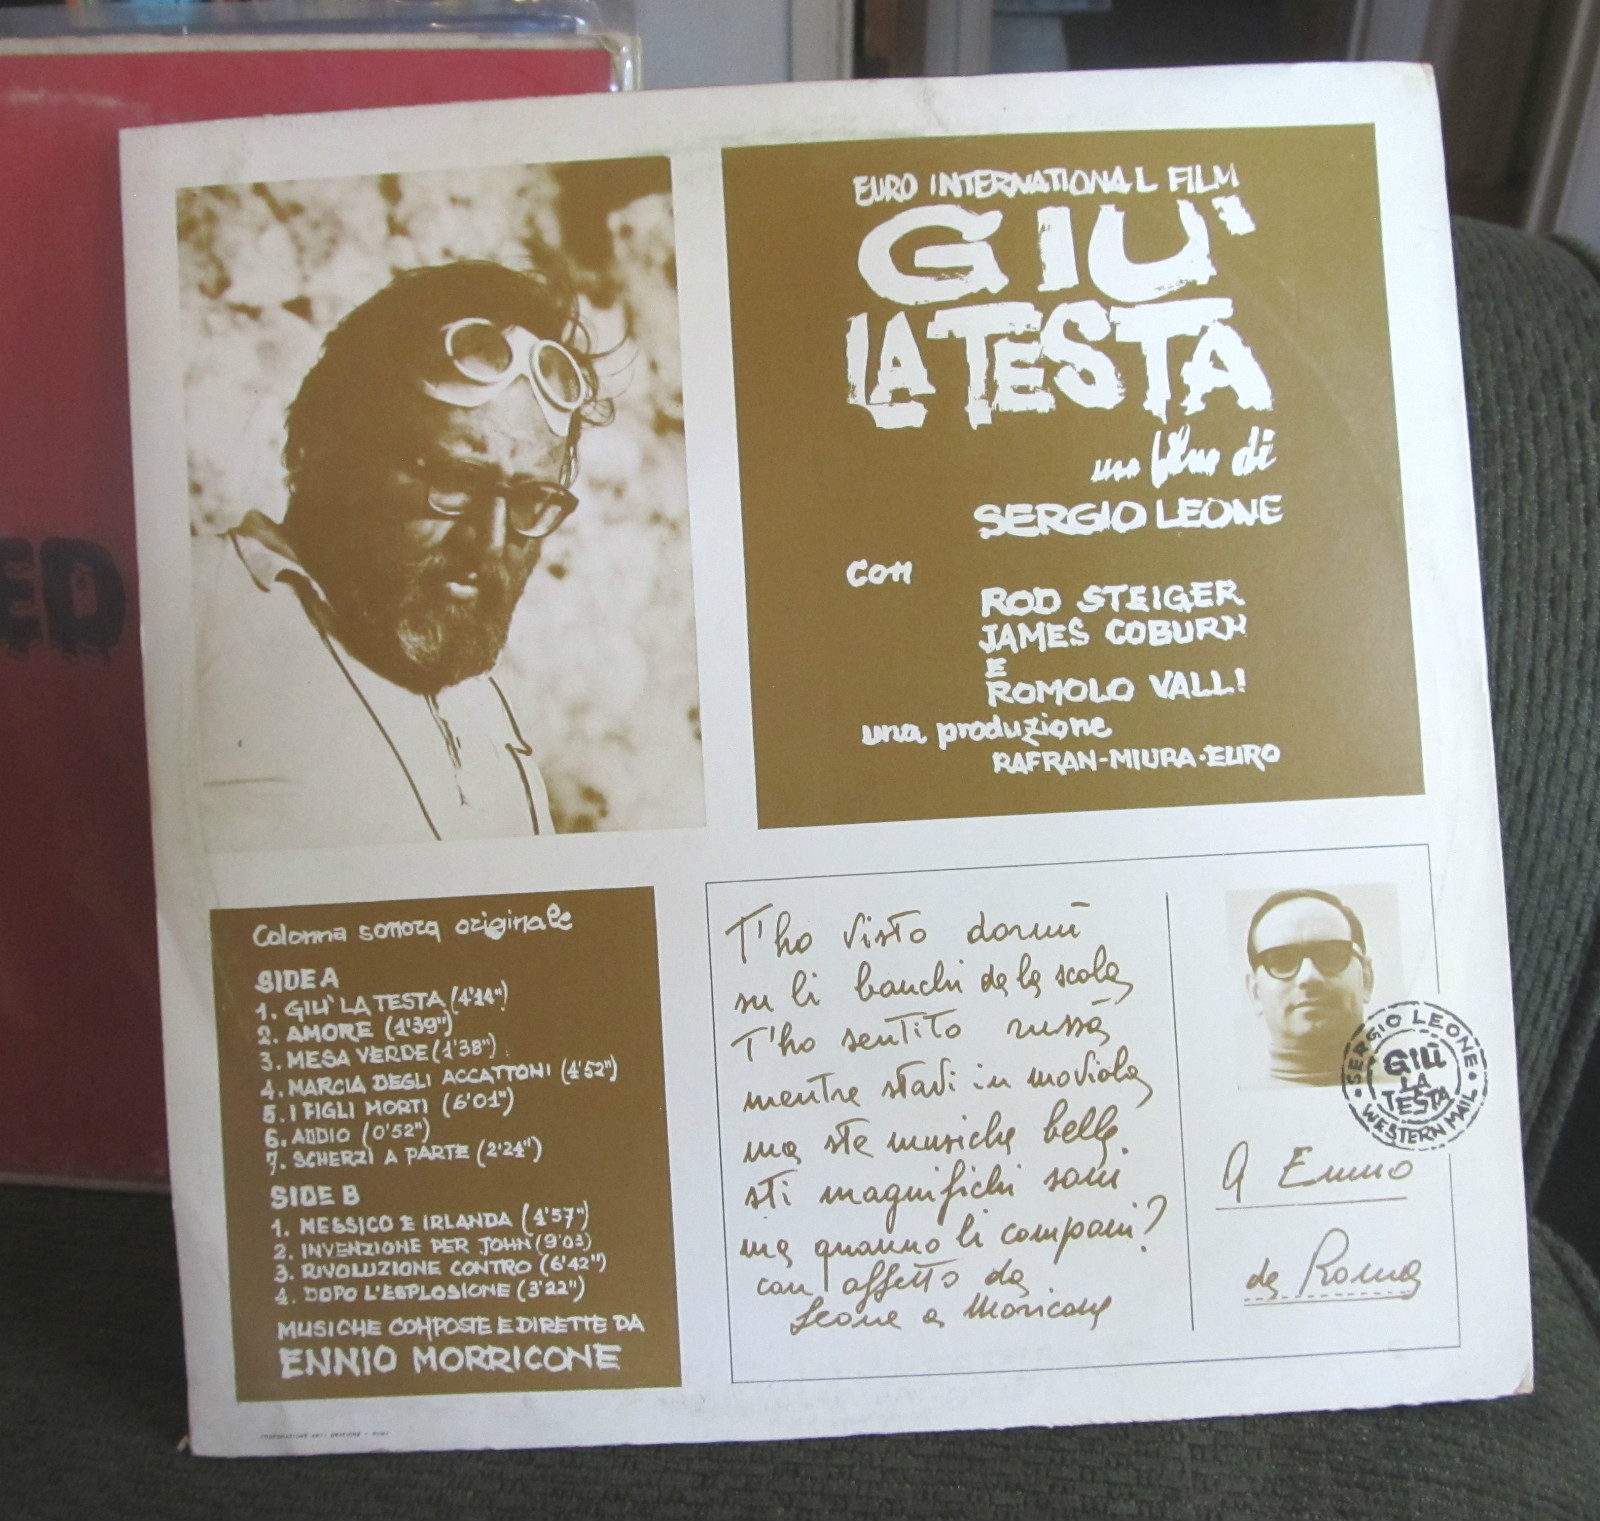 ED
EURO INTERNATIONAL FILM
GIU'
LA TESTA
un film di
SERGIO LEONE
con
ROD STEIGER
JAMES COBURN
E
ROMOLO VALLI
una produzione
RAFRAN-MIURA·EURO
Colonna sonora originale
SIDE A
1. GIU' LA TESTA (4'14")
2. AMORE (1'39")
3. MESA VERDE (1'38")
4. MARCIA DEGLI ACCATTONI (4'52")
5. I FIGLI MORTI (6'01")
6. ADDIO (0'52")
7. SCHERZI A PARTE (2'24")
SIDE B
1. MESSICO E IRLANDA (4'57")
2. INVENZIONE PER JOHN (9'03)
3. RIVOLUZIONE CONTRO (6'42")
4. DOPO L'ESPLOSIONE (3'22")
MUSICHE COMPOSTE E DIRETTE DA
ENNIO MORRICONE
T'ho visto dormì
su li banchi de la scola
T'ho sentito russà
mentre stavi in moviola
ma ste musiche belle
sti magnifichi soni
ma quanno li componi?
con affetto da
Leone a Moricone
SERGIO LEONE
GIÙ
LA
TESTA
WESTERN MAIL
A Ennio
da Roma